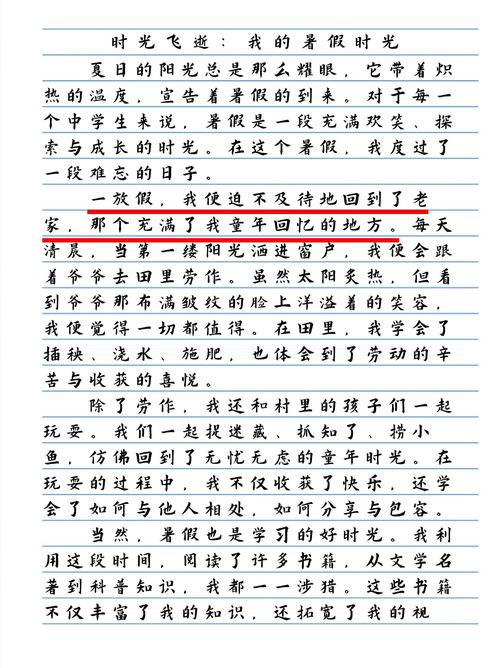 时光飞逝：我的暑假时光
夏日的阳光总是那么耀眼，它带着炽
热的温度，宣告着暑假的到来。对于每一
个中学生来说，暑假是一段充满欢笑、探
索与成长的时光。在这个暑假，我度过了
一段难忘的日子。
一放假，我便迫不及待地回到了老
家，那个充满了我童年回忆的地方。每天
清晨，当第一缕阳光洒进窗户，我便会跟
着爷爷去田里劳作。虽然太阳炙热，但看
到爷爷那布满皱纹的脸上洋溢着的笑容，
我便觉得一切都值得。在田里，我学会了
插秧、浇水、施肥，也体会到了劳动的辛
苦与收获的喜悦。
除了劳作，我还和村里的孩子们一起
玩耍。我们一起捉迷藏、抓知了、捞小
鱼，仿佛回到了无忧无虑的童年时光。在
玩耍的过程中，我不仅收获了快乐，还学
会了如何与他人相处，如何分享与包容。
当然，暑假也是学习的好时光。我利
用这段时间，阅读了许多书籍，从文学名
著到科普知识，我都一一涉猎。这些书籍
不仅丰富了我的知识，还拓宽了我的视